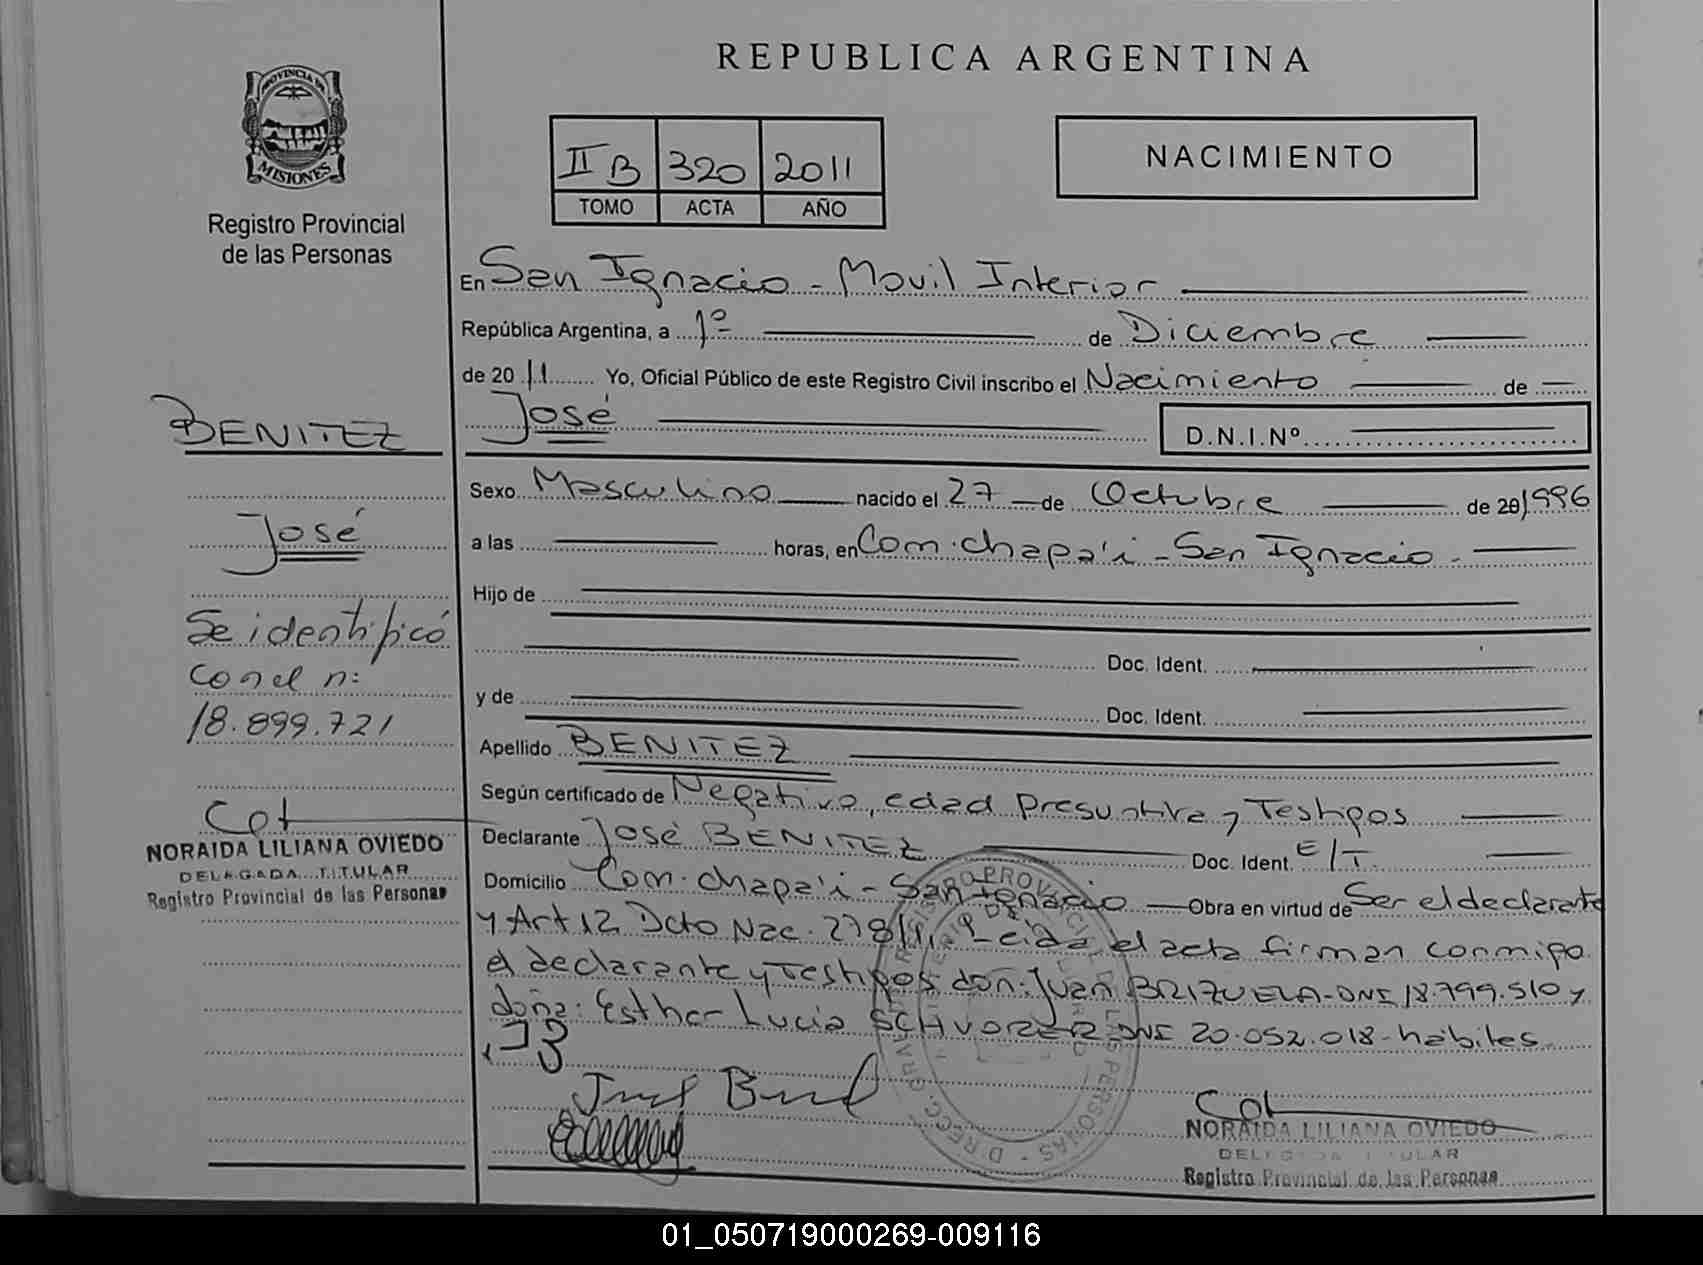 REPUBLICA ARGENTINA
PROVINCIA DE
MISIONES
Registro Provincial
de las Personas
II B 320 2011
TOMO ACTA AÑO
NACIMIENTO
En San Ignacio - Movil Interior
República Argentina, a 1º de Diciembre
de 2011 Yo, Oficial Público de este Registro Civil inscribo el Nacimiento de
José
D.N.I.Nº
Sexo Masculino nacido el 27 de Octubre de 20 1996
a las horas, en Com. chapa'i - San Ignacio -
Hijo de
Doc. Ident.
y de
Doc. Ident.
Apellido BENITEZ
Según certificado de Negativo, edad Presuntiva y Testigos
Declarante José BENITEZ Doc. Ident. E/T.
Domicilio Com. chapa'i - San Ignacio - Obra en virtud de Ser el declarante
y Art 12 Dcto Nac. 278/11, Leida el acta firman conmigo
el declarante y Testigos don: Juan BRIZUELA - DNI 18.799.510 y
doña: Esther Lucia DNI 20.052.018 - habiles
JB
NORAIDA LILIANA OVIEDO
DELEGADA TITULAR
Registro Provincial de las Personas
BENITEZ
José
Se identificó
con el n:
18.899.721
NORAIDA LILIANA OVIEDO
DELEGADA TITULAR
Registro Provincial de las Personas
01_050719000269-009116